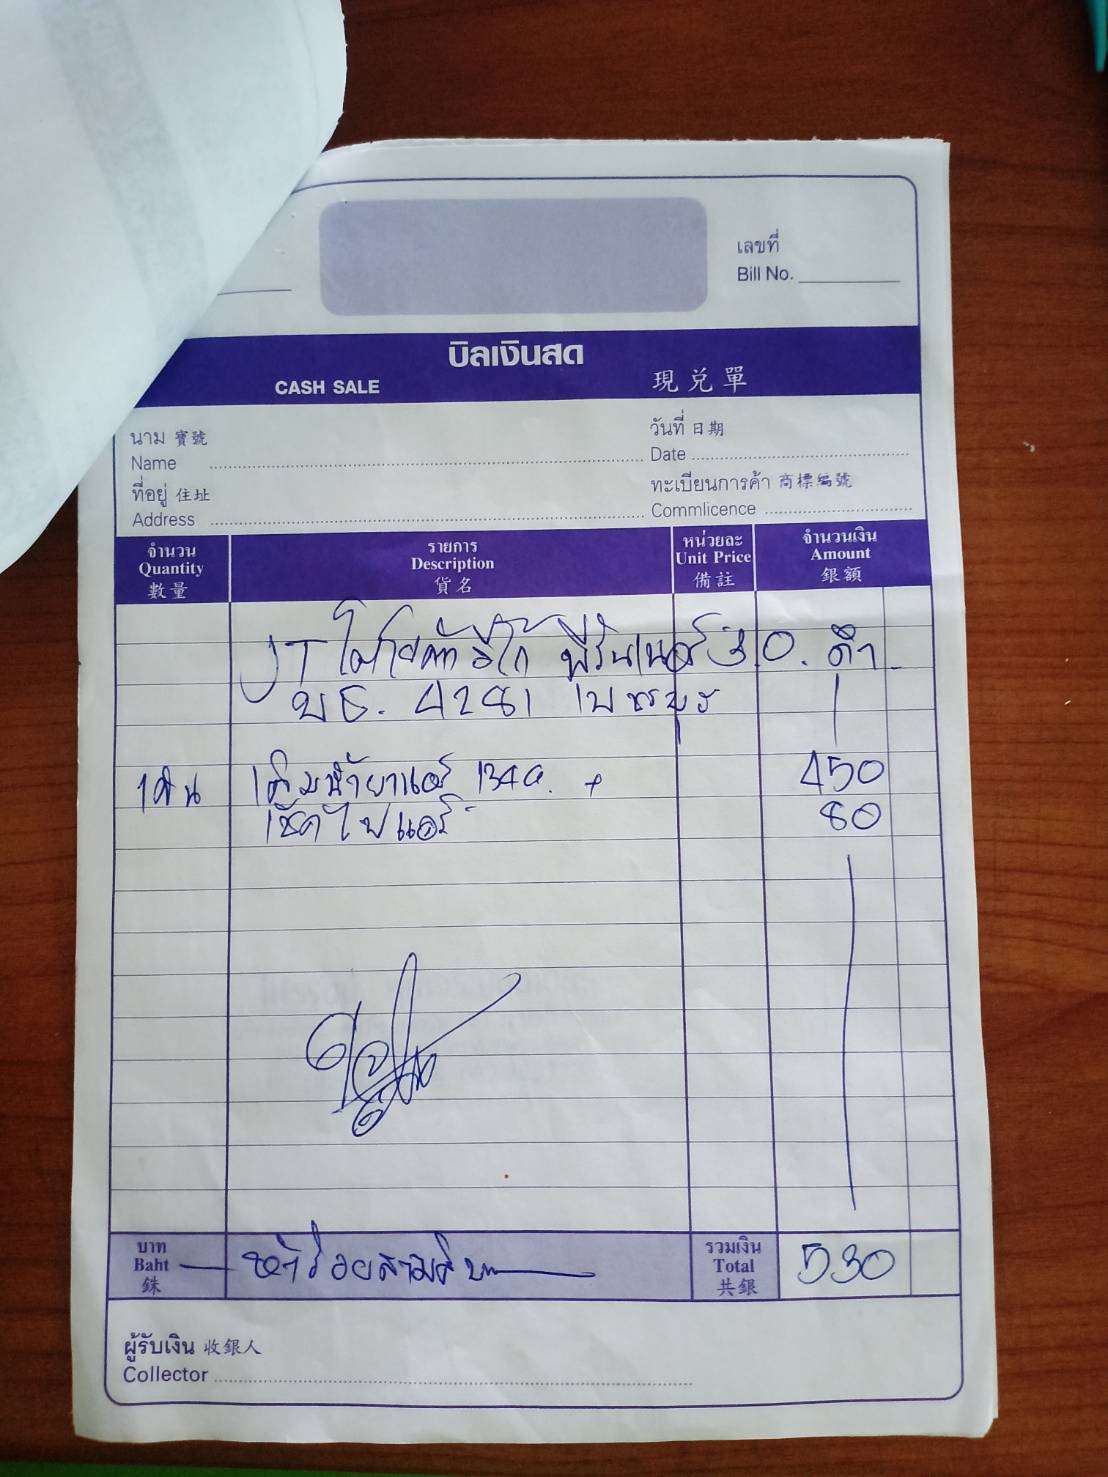 เลขที่
Bill No.
บิลเงินสด
CASH SALE 現兌單
นาม 寶號
Name
วันที่ 日期
Date
ที่อยู่ 住址
Address
ทะเบียนการค้า 商標編號
Commlicence
จำนวน รายการ หน่วยละ จำนวนเงิน
Quantity Description Unit Price Amount
數量 貨名 備註 銀額
JT อีโก้ 3.0. ดำ
บธ. 4281 เพชรบุร
เติมน้ำยาแอร์ 134a. + 450
เช็คไฟแอร์ 80
บาท
Baht
銖
ห้าร้อยสามสิบ
รวมเงิน
Total
共銀
530
ผู้รับเงิน 收銀人
Collector